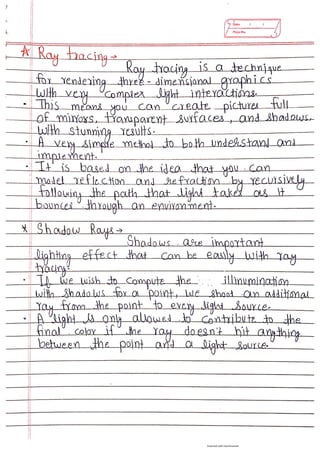 Date / /
Page No.
* Ray tracing →
Ray tracing is a technique
for rendering three-dimensional graphics
with very complex light interactions.
• This means you can create pictures full
of mirrors, transparent surfaces, and shadows,
with stunning results.
• A very simple method to both understand and
implement.
• It is based on the idea that you can
model reflection and refraction by recursively
following the path that light takes as it
bounces through an environment.
* Shadow Rays →
Shadows are important
lighting effect that can be easily with ray
tracing.
• If we wish to compute the illinumination
with shadows for a point, we shoot an additional
ray from the point to every light source.
• A light is only allowed to contribute to the
final color if the ray doesn't hit anything
between the point and a light source.
Scanned with CamScanner